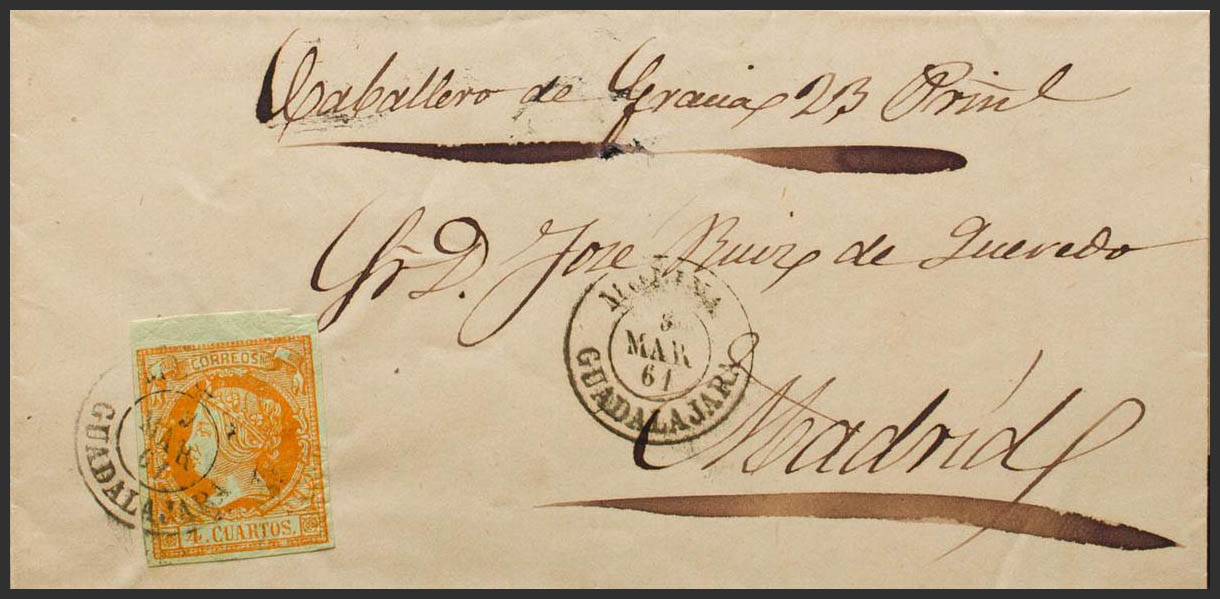 Caballero de Gracia 23 Prinl
Sr. D. José Ruiz de Quevedo
MOLINA
8
MAR
61
GUADALAJARA
Madrid
CORREOS
MAR
61
GUADALAJARA
4 CUARTOS.